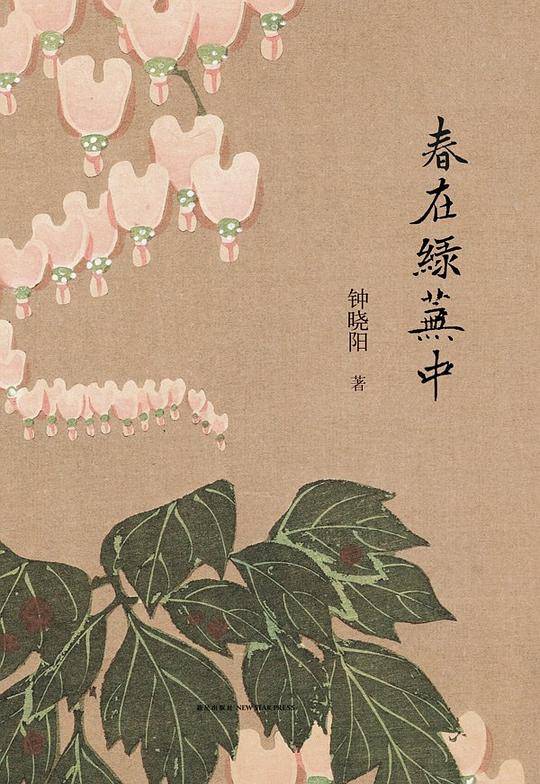 春在綠蕪中
钟晓阳 著
新星出版社 NEW STAR PRESS